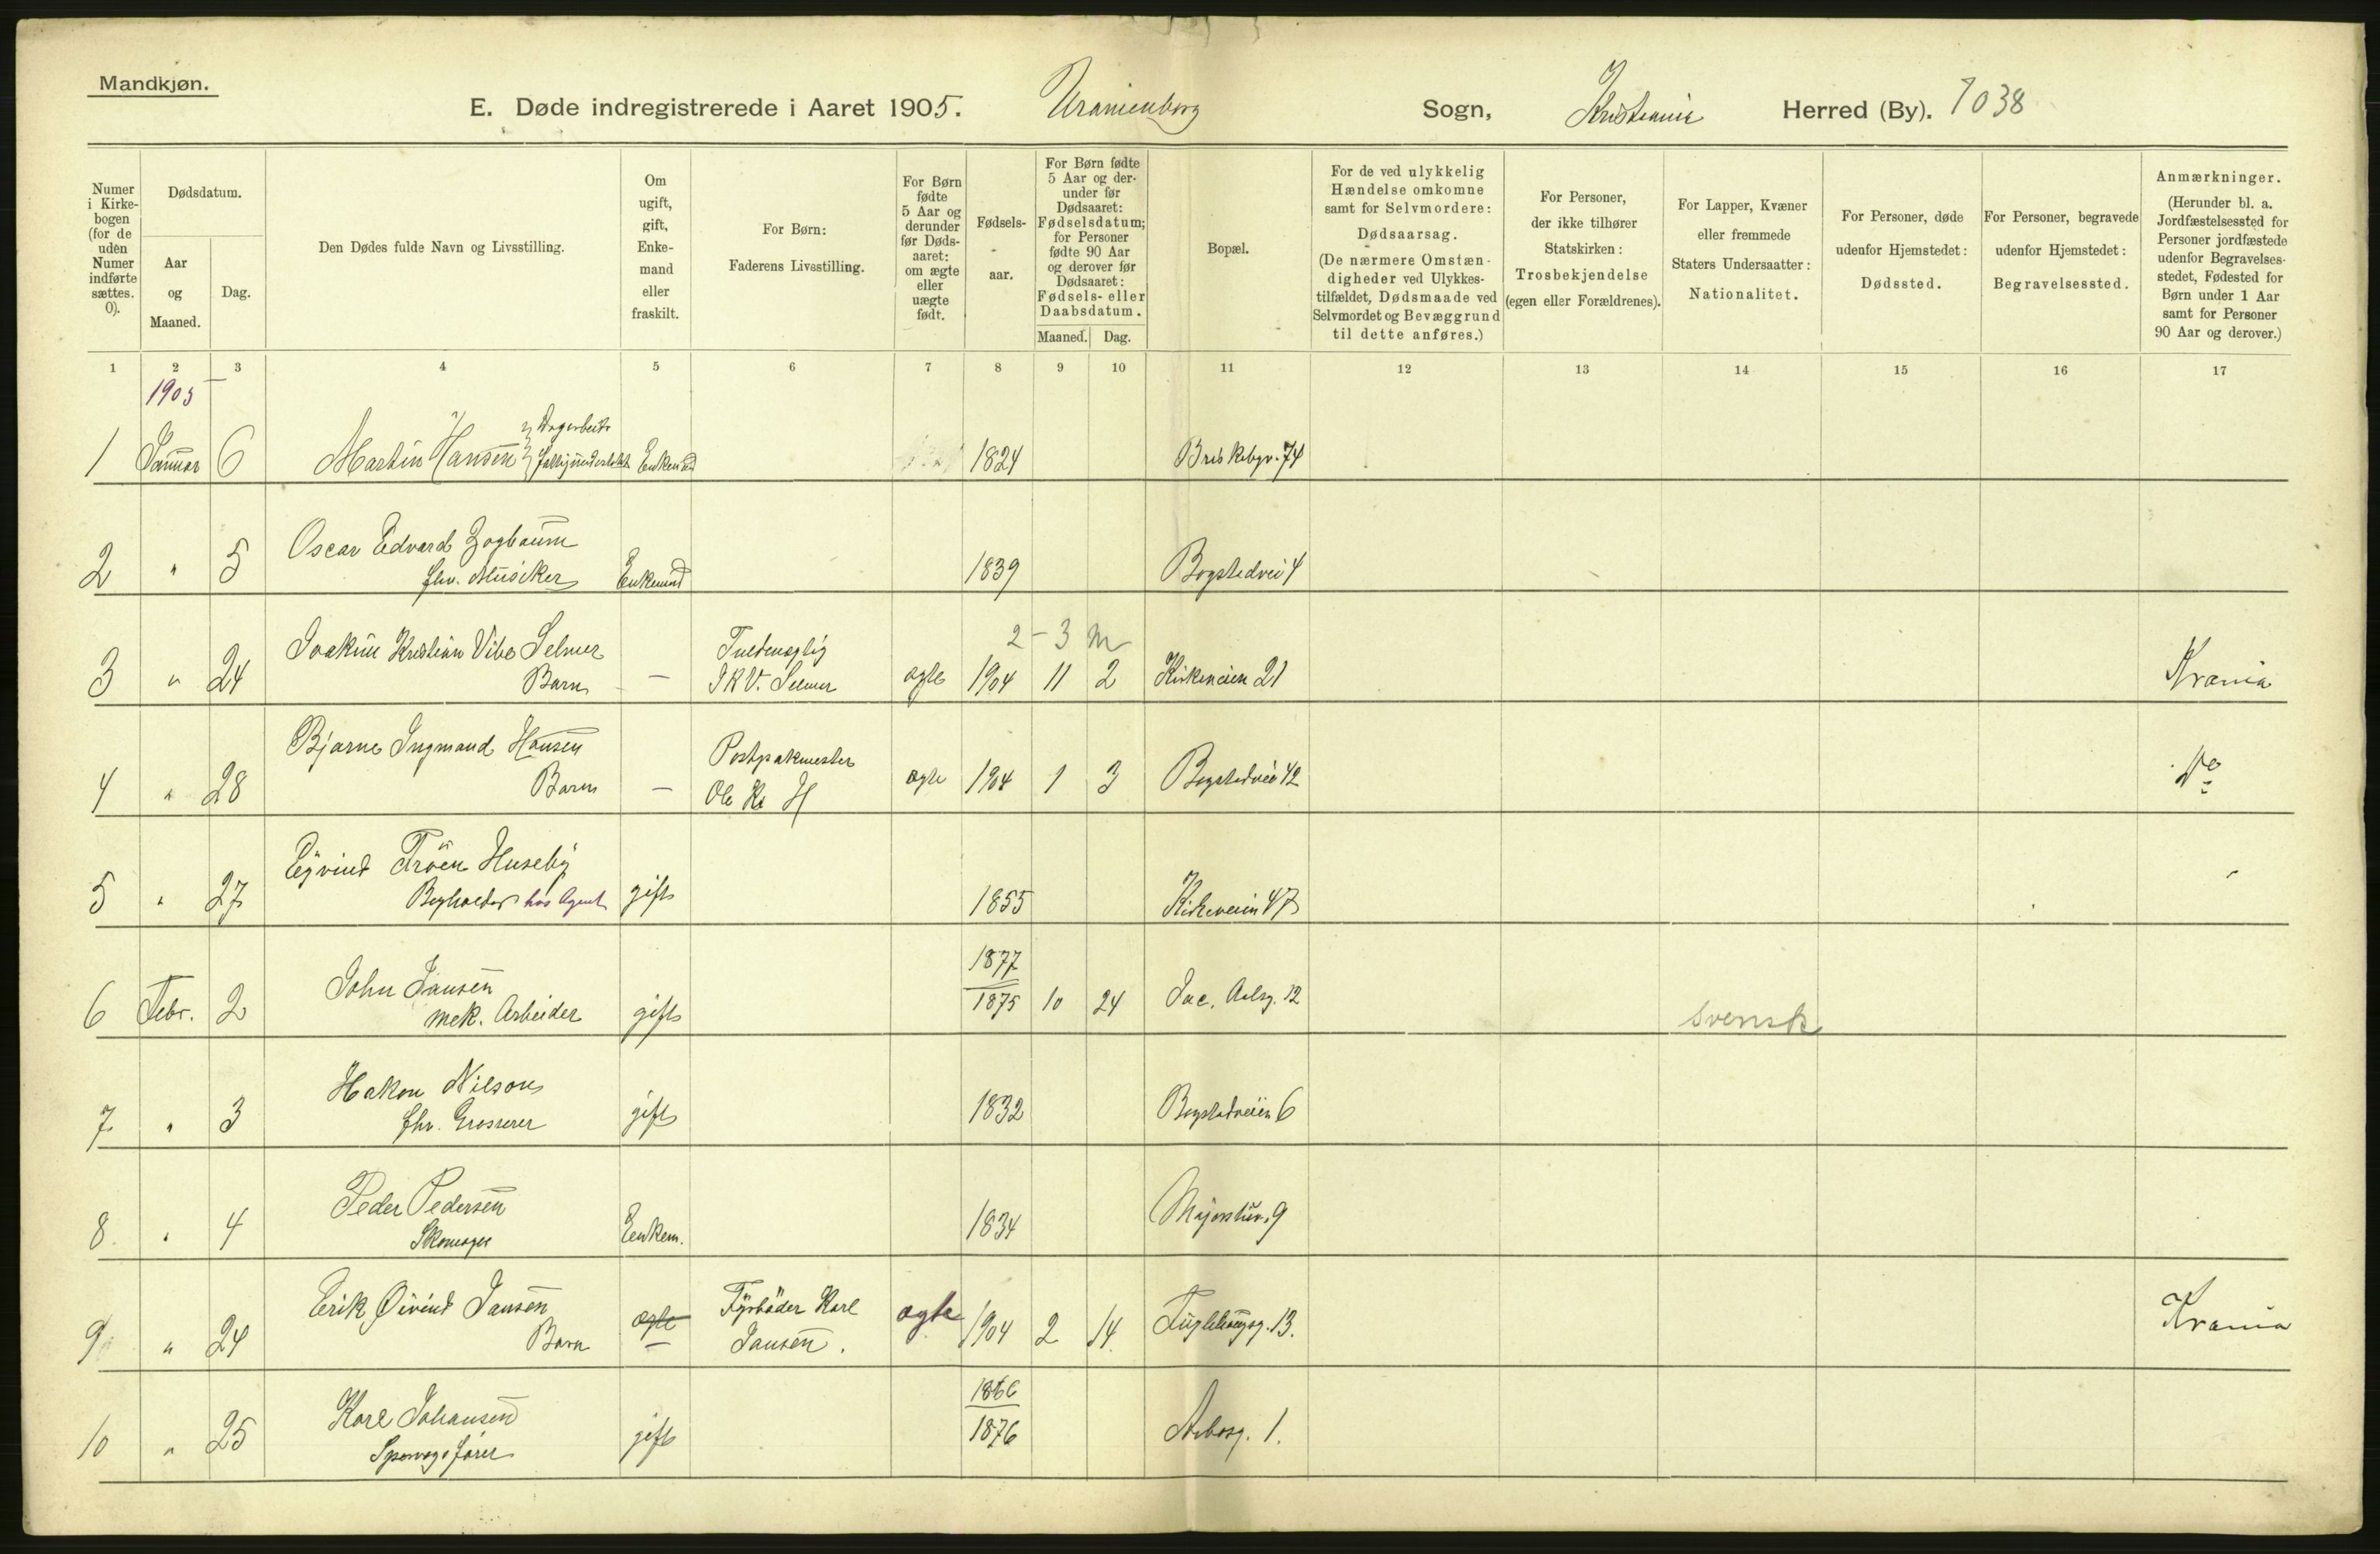 Mandkjøn.
E. Døde indregistrerede i Aaret 1905. Uranienborg Sogn, Kristiania Herred (By). 1038
Numer i Kirkebogen (for de uden Numer indførte sættes. 0).
Dødsdatum.
Aar og Maaned.
Dag.
Den Dødes fulde Navn og Livsstilling.
Om ugift, gift, Enkemand eller fraskilt.
For Børn: Faderens Livsstilling.
For Børn fødte 5 Aar og derunder før Dødsaaret: om ægte eller uægte født.
Fødsels-aar.
For Børn fødte 5 Aar og derunder før Dødsaaret: Fødselsdatum; for Personer fødte 90 Aar og derover før Dødsaaret: Fødsels- eller Daabsdatum.
Maaned. Dag.
Bopæl.
For de ved ulykkelig Hændelse omkomne samt for Selvmordere: Dødsaarsag. (De nærmere Omstændigheder ved Ulykkestilfældet, Dødsmaade ved Selvmordet og Bevæggrund til dette anføres.)
For Personer, der ikke tilhører Statskirken: Trosbekjendelse (egen eller Forældrenes).
For Lapper, Kvæner eller fremmede Staters Undersaatter: Nationalitet.
For Personer, døde udenfor Hjemstedet: Dødssted.
For Personer, begravede udenfor Hjemstedet: Begravelsessted.
Anmærkninger. (Herunder bl. a. Jordfæstelsessted for Personer jordfæstede udenfor Begravelsesstedet, Fødested for Børn under 1 Aar samt for Personer 90 Aar og derover.)
1 2 3 4 5 6 7 8 9 10 11 12 13 14 15 16 17
1905
Dagarbeider
1 Januar 6 Martin Hansen Enkemd 1824 Briskebyv. 74
Oscar Edvard Zogbaum
2 " 5 fhv. Musiker Enkemd 1839 Bogstadvei 4
2 - 3 m
Joakim Kristian Vibe Selmer
3 " 24 Barn — J K V. Selmer ægte 1904 11 2 Kirkeveien 21 Krania
Bjarne Ingmand Hansen Postpakmester
4 " 28 Barn — Ole Kr H ægte 1904 1 3 Bogstadvei 42 Do
Eyvind Tröen Huseby
5 " 27 Bogholder hos Agent gift 1855 Kirkeveien 47
1877
John Jansen
6 Febr. 2 mek. Arbeider gift 1875 10 24 Jac. Aalsg. 12 svensk
Hakon Nilson
7 " 3 fhv. Grosserer gift 1832 Bogstadveien 6
Peder Pedersen
8 " 4 Skomager Enkem. 1834 Majorstuv. 9
Erik Øivind Jansen ægte Fyrbøder Karl ægte
9 " 24 Barn — Jansen. 1904 2 14 Fuglehaugsg. 13. Krania
1866
Karl Johansen
10 " 25 Sporvogsfører gift 1876 Arbosg. 1.